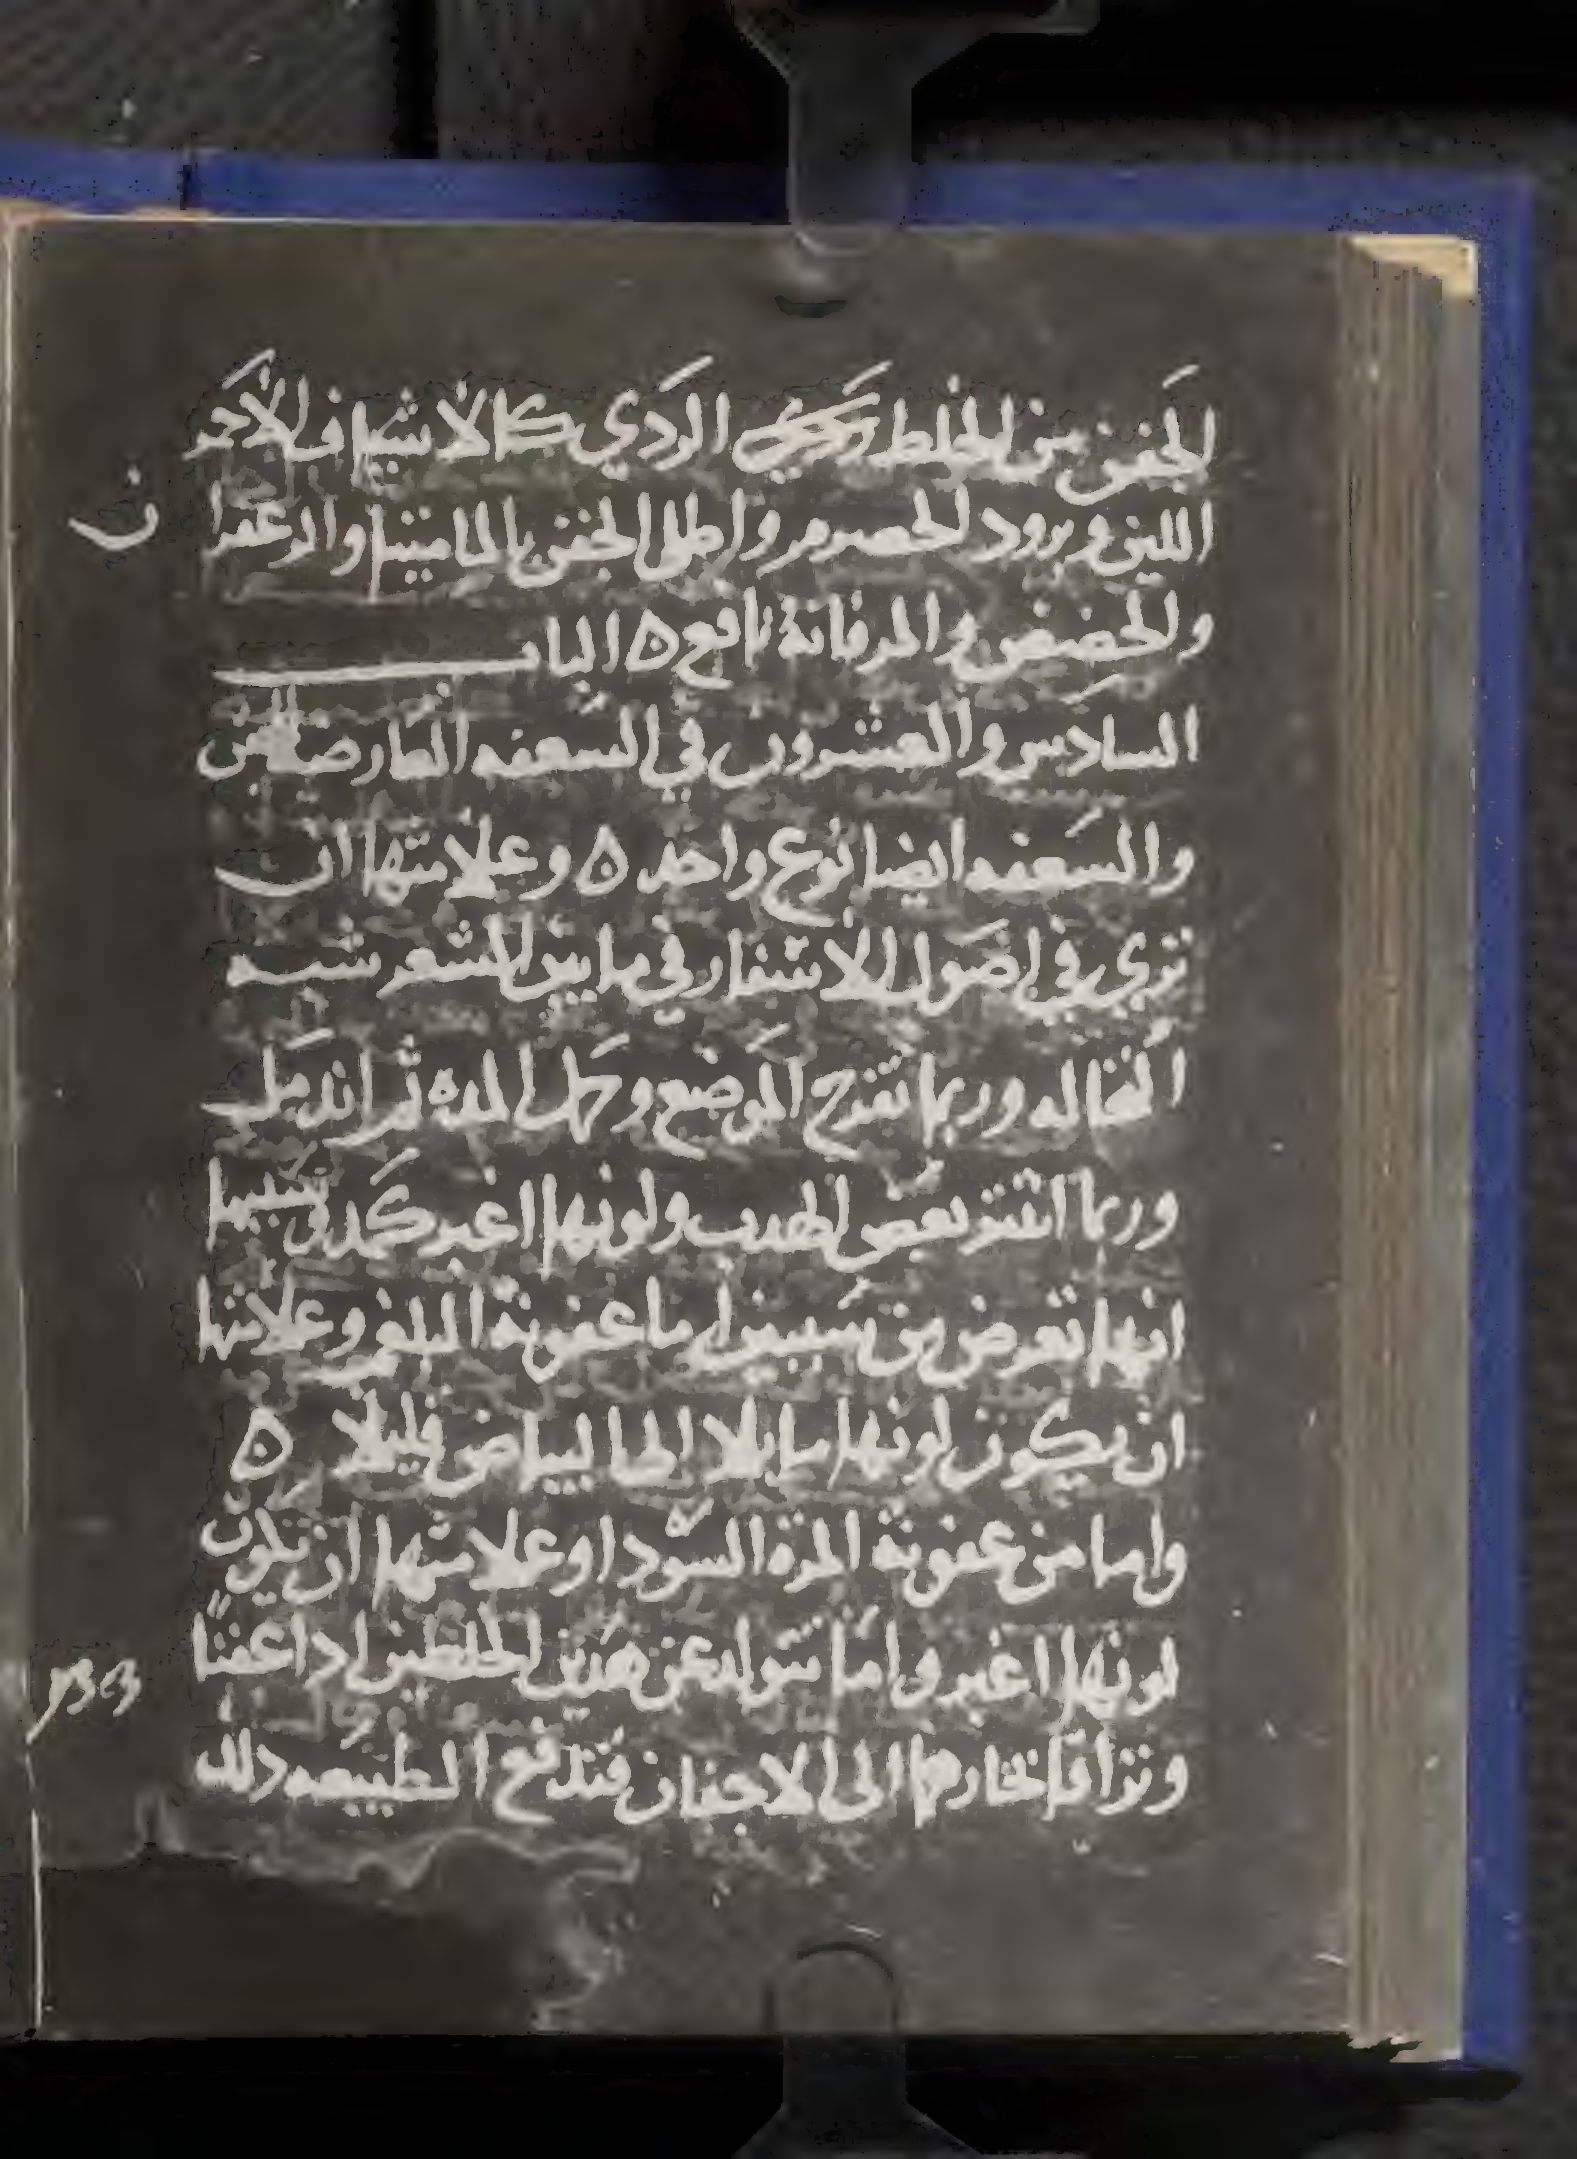 الجفن من الخلط الردي كالاشياف الاحمر
اللين وبرود الحصرم واطلي الجفن بالماميثا والزعفرا
ن
والحضض والمرقانة نافع ه الباب
السادس والعشرون في السعفه العارضه
والسعفه ايضا نوع واحد ه وعلامتها ان
تري في اصول الاشفار في ما بين الشعر شبه
النخاله وربما تقرح الموضع وحمل المده ثم اندمل
وربما انتثر بعض الهدب ولونها اغبر كمد وسببها
انها تعرض من سببين اما عفونة البلغم وعلامتها
ان يكون لونها مايلا الى البياض قليلا ه
واما من عفونة المرة السودا وعلامتها ان تكون
لونها اغبر وانما تتولد عن هذين الخلطين اذا عفنا
وتراقا بخارهما الى الاجفان فتدفع الطبيعه ذلك